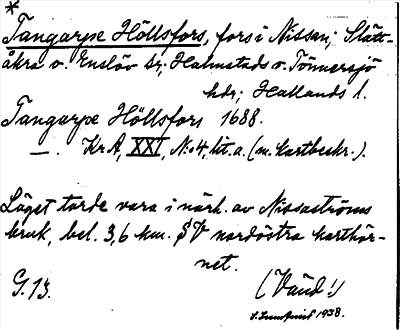 *
Tangarpe Höllsfors, fors i Nissan; Slätt-
åkra o. Enslöv sr; Halmstads o. Tönnersjö
hdr; Hallands l.
Tangarpe Höllsfors 1688.
—. KrA, XXI, No 4, lit. a. (m. kartbeskr.).
Läget torde vara i närh. av Nissaströms
bruk, bel. 3,6 km. SV nordöstra karthör-
net.
G. 13. (Vänd!)
1938.